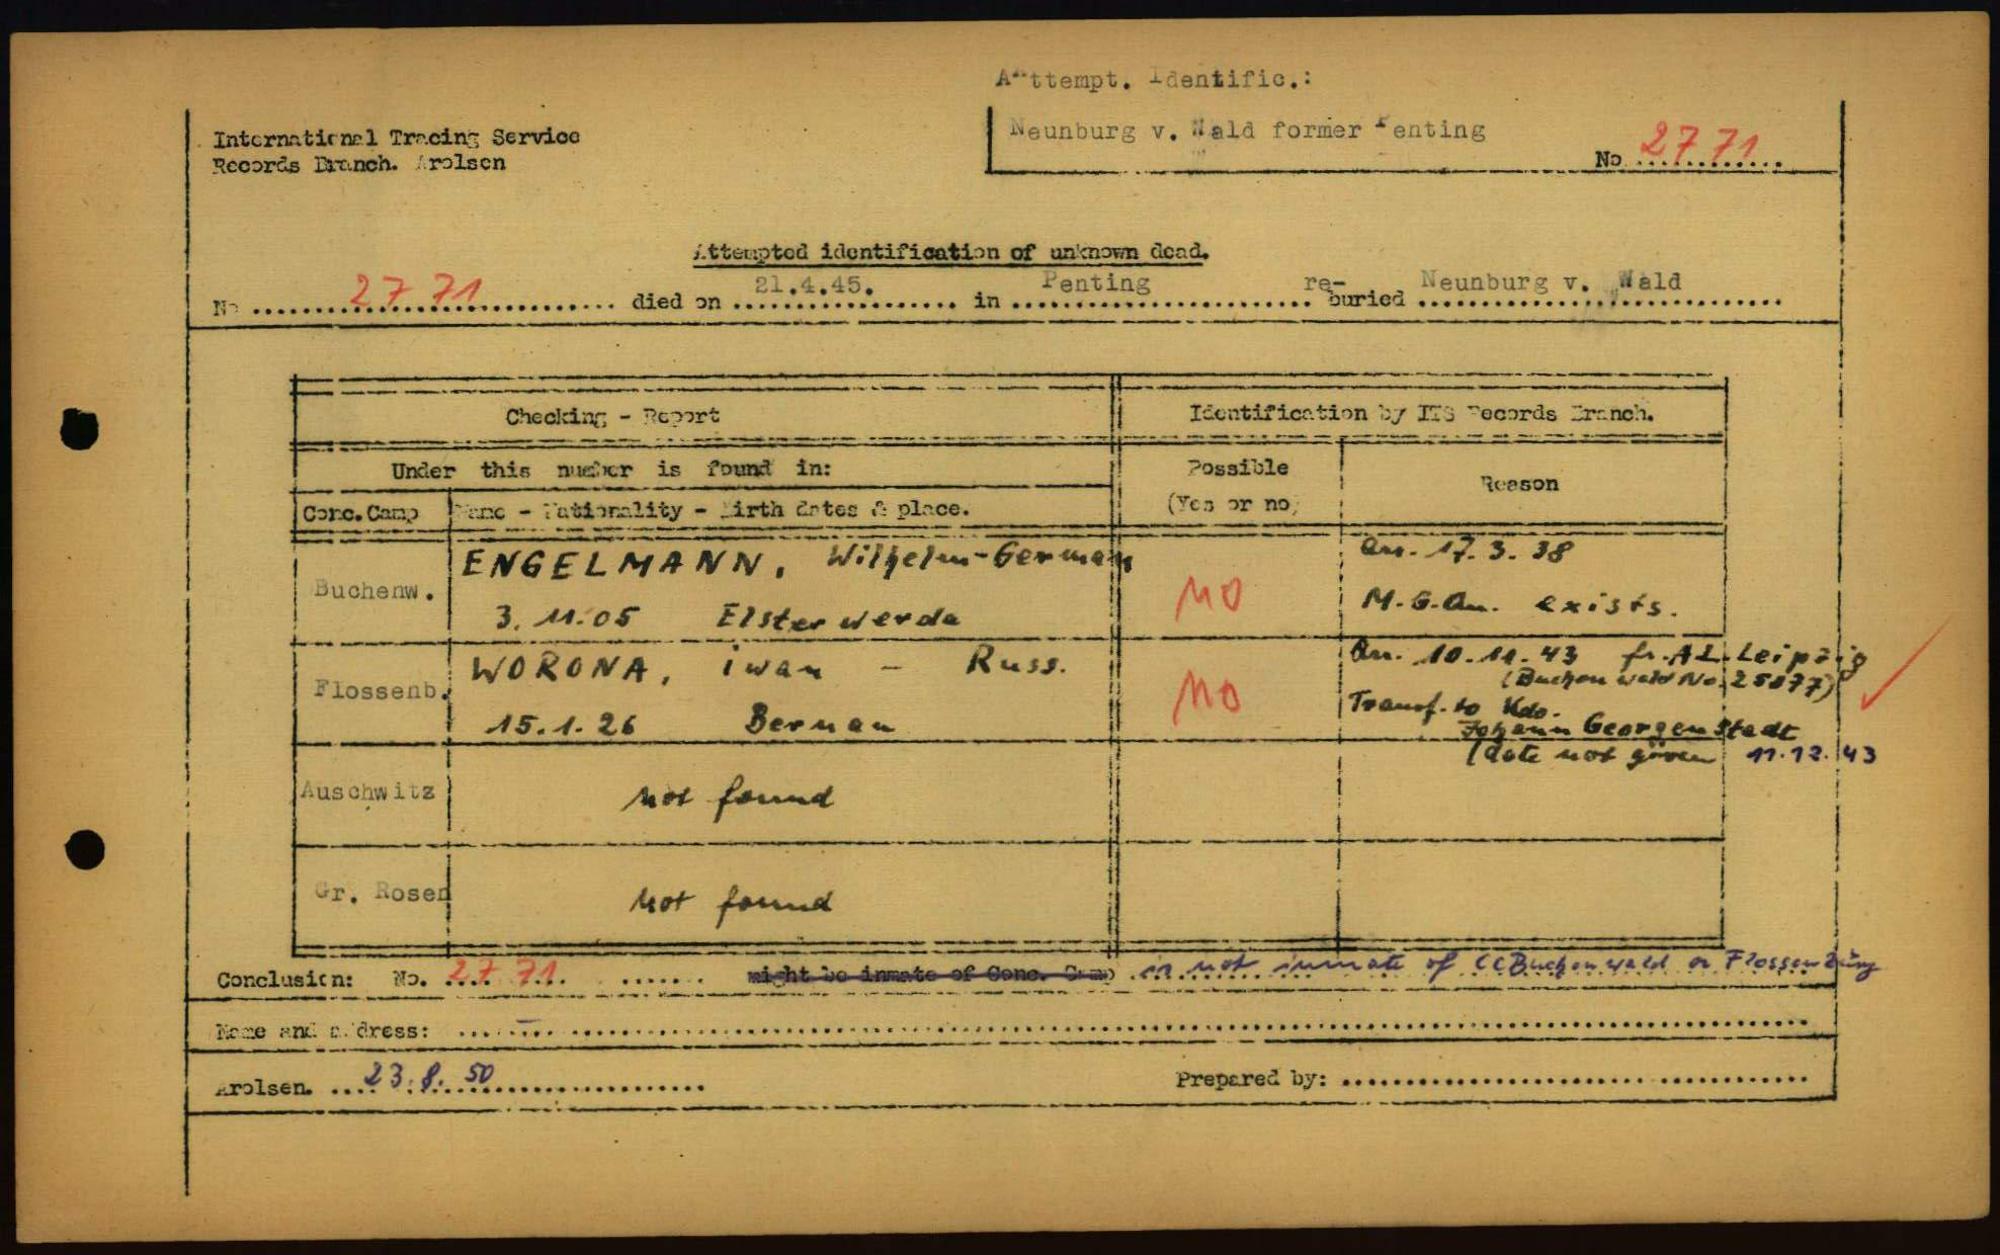 Attempt. Identific.:
International Tracing Service
Records Branch. Arolsen
Neunburg v. Wald former Penting
No 2771
Attempted identification of unknown dead.
No 2771 died on 21.4.45. in Penting re-buried Neunburg v. Wald
Checking - Report
Identification by ITS Records Branch.
Under this number is found in:
Possible
(Yes or no)
Reason
Conc.Camp
Name - Nationality - Birth dates & place.
Buchenw.
ENGELMANN, Wilhelm-German
3. 11. 05 Elsterwerda
NO
Arr. 17. 3. 38
M.G.Au. exists.
Flossenb.
WORONA, iwan - Russ.
15.1.26 Bernau
NO
Arr. 10.11.43 fr. A.L. Leipzig
(Buchenwald No. 25077)
Transf. to Kdo.
Johann Georgenstadt
(date not given 11.12.43
Auschwitz
not found
Gr. Rosen
not found
Conclusion: No. 2771 might be inmate of Conc. Camp is not inmate of CC Buchenwald or Flossenbürg
Name and address: -
Arolsen. 23.8. 50
Prepared by: